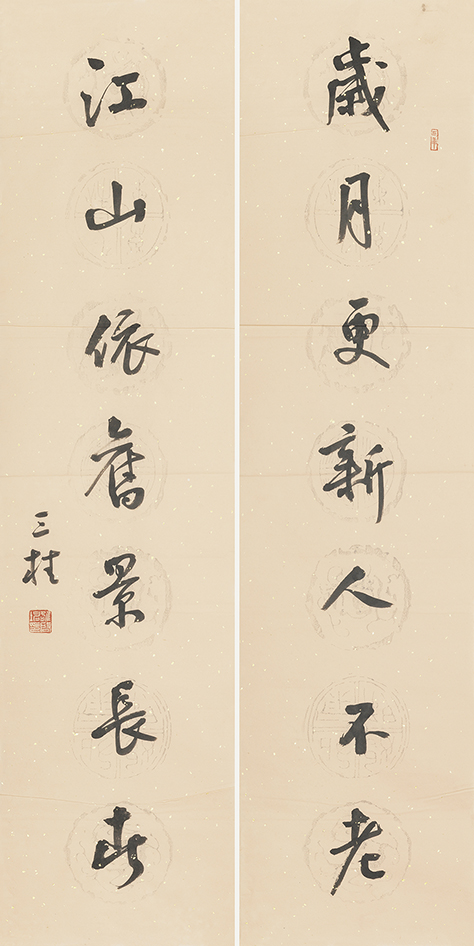 歲月更新人不老
江山依舊景長春
三桂